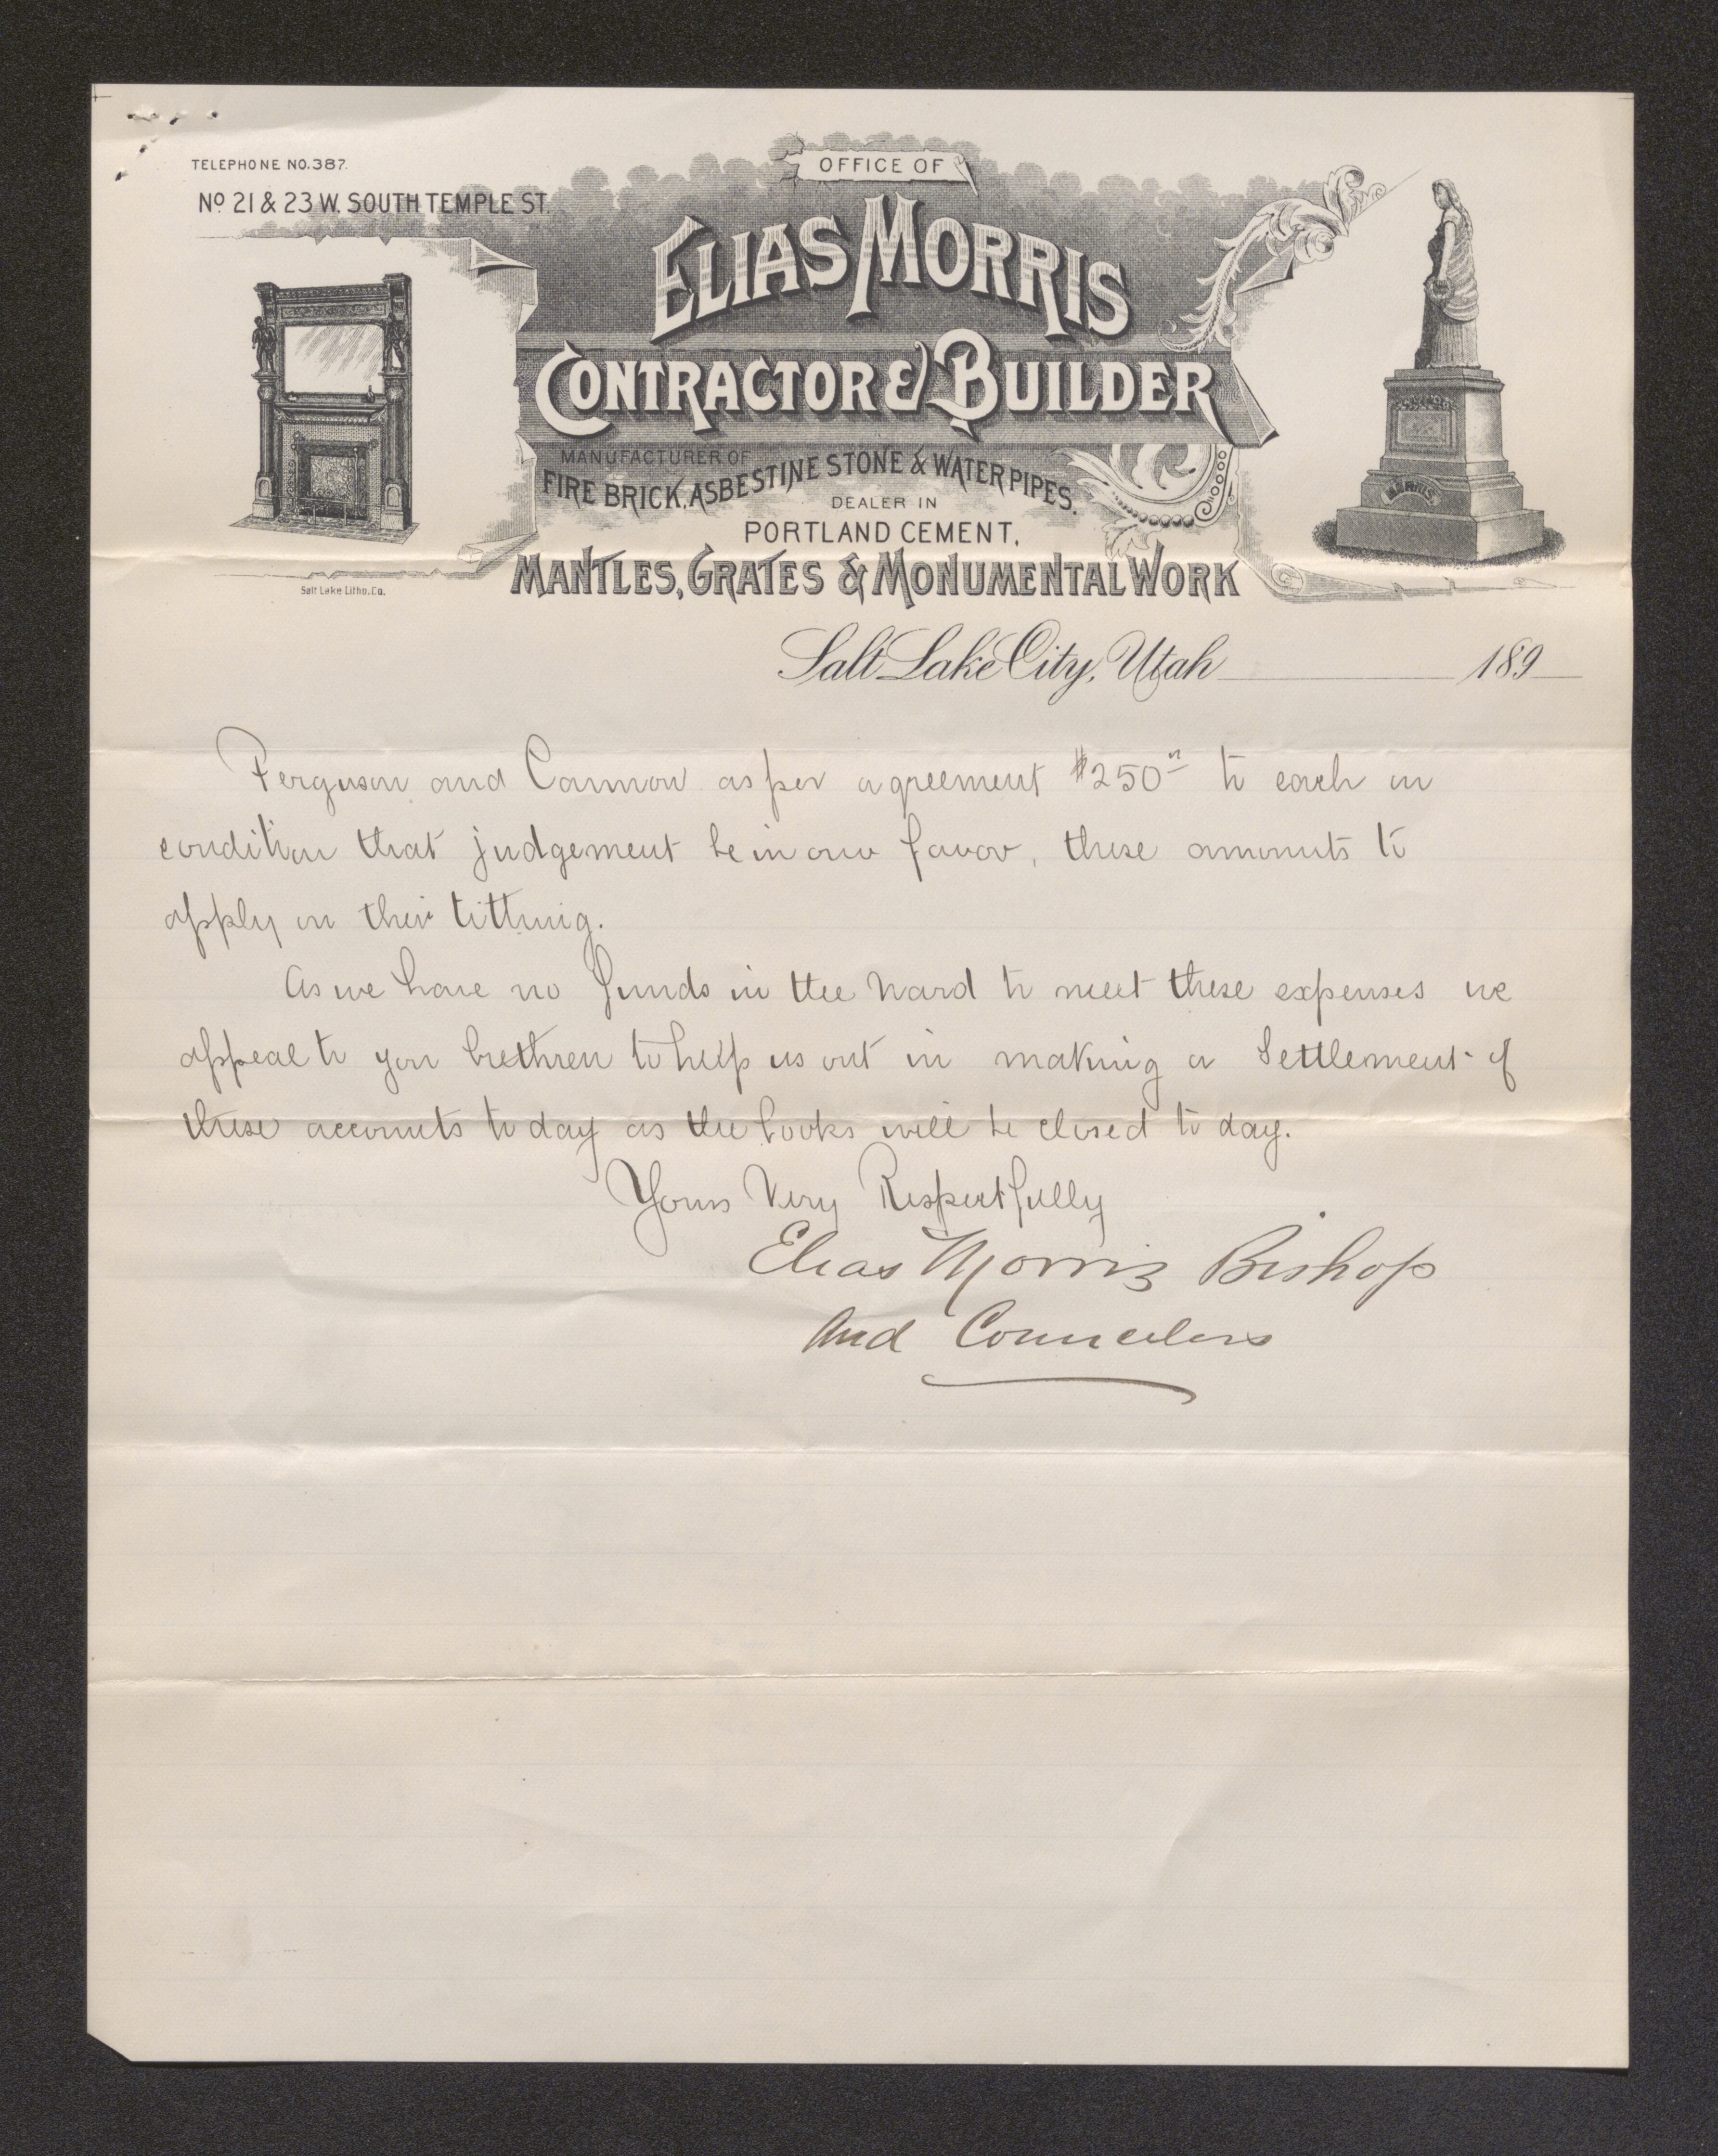 TELEPHONE NO. 387.
No 21 & 23 W. SOUTH TEMPLE ST.
OFFICE OF
ELIAS MORRIS
CONTRACTOR & BUILDER
MANUFACTURER OF
FIRE BRICK, ASBESTINE STONE & WATER PIPES.
DEALER IN
PORTLAND CEMENT,
MANTLES, GRATES & MONUMENTAL WORK
MORRIS
Salt Lake Litho. Co.
Salt Lake City, Utah 189
Ferguson and Cannon as per agreement $250 to each on
condition that judgement be in our favor, these amounts to
apply on their tithing.
As we have no funds in the Ward to meet these expenses we
appeal to you brethren to help us out in making a Settlement of
these accounts to day as the books will be closed to day.
Yours Very Respectfully
Elias Morris Bishop
And Councelers